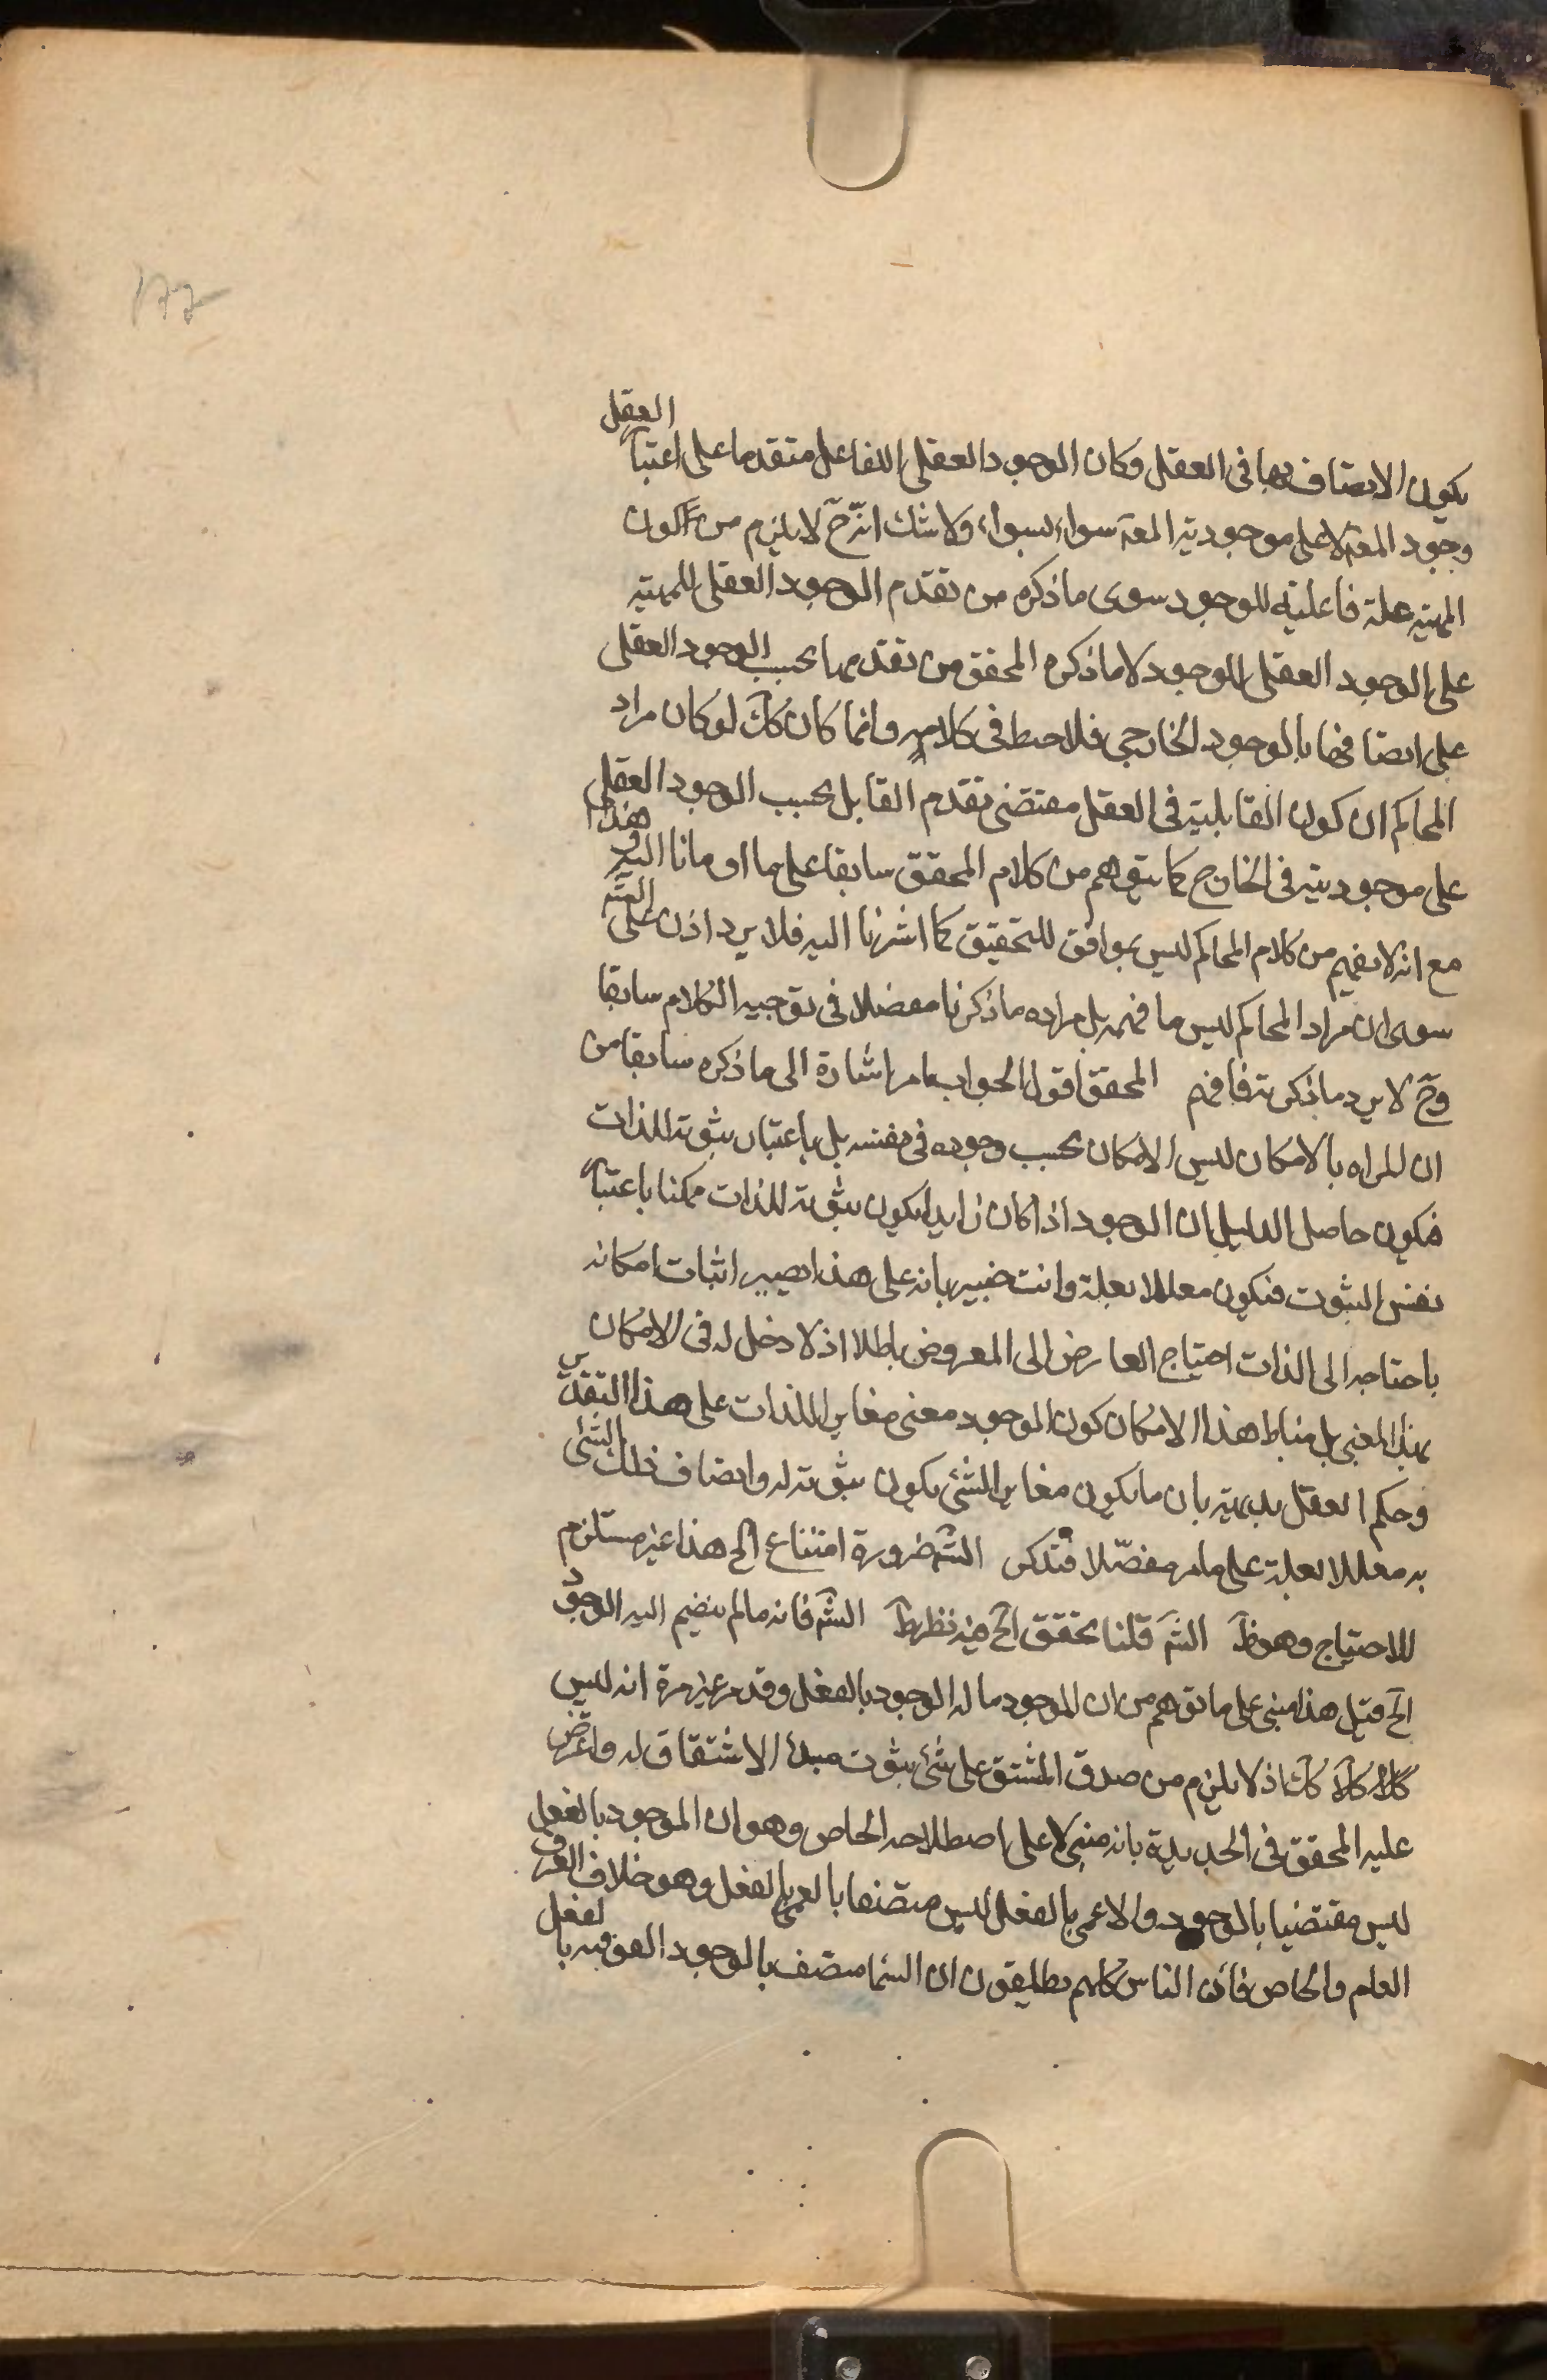 ١٧٦
يكون الاتصاف بها فى العقل وكان الوجود العقلى للفاعل متقدما على اعتبار العقل
وجود المعة لا على موجودية المعة سواء بسواء ولا شك انه ح لا يلزم من كون
المهيته علة فاعلية للوجود سوى ما ذكره من تقدم الوجود العقلى للمهيته
على الوجود العقلى للوجود لا ما ذكره المحقق من تقدمها بحسب الوجود العقلى
على اتصافها بالوجود الخارجى فلا خبط فى كلامه وانما كان كك لو كان مراد
المحاكم ان كون القابلية فى العقل مقتضى تقدم القابل بحسب الوجود العقلى
على موجوديته فى الخارج كما يتوهم من كلام المحقق سابقا على ما اومانا اليه وهذا
مع انه لا يفهم من كلام المحاكم ليس بموافق للتحقيق كما اشرنا اليه فلا يرد اذن على
سوى ان مراد المحاكم ليس ما فهمه بل مراده ما ذكرنا مفصلا فى توجيه الكلام سابقا
وح لا يرد ما ذكرته فافهم المحقق اقول الجواب بما مر اشارة الى ما ذكره سابقا من
ان المراد بالامكان ليس الامكان بحسب وجوده فى نفسه بل باعتبار ثبوته للذات
فيكون حاصل الدليل ان الوجود اذا كان زايدا يكون ثبوته للذات ممكنا باعتبار
نفس الثبوت فيكون معللا بعلة وانت خبير بانه على هذا يصير اثبات امكانه
باحتاجه الى الذات احتياج العارض الى المعروض باطلا اذ لا دخل له فى الامكان
بهذا المعنى بل مناط هذا الامكان كون الموجود معنى مغايرا للذات على هذا التقدير
وحكم العقل بديهته بان ما يكون مغاير الشئ يكون ثبوته له واتصاف ذلك الشئ
به معللا بعلة على ما مر مفصّلا فتذكر الشه ضرورة امتناع الخ هذا غير مستلزم
للاحتياج وهو ظ الشه قلنا تحقق الخ فيه نظر ظ الشه فانه ما لم ينضم اليه الوجود
الخ قيل هذا مبنى على ما توهم من ان الموجود ما له الوجود بالفعل وقد مر غير مرة انه ليس
كك اذ لا يلزم من صدق المشتق على شئ ثبوت مبدأ الاشتقاق له واعترض
عليه المحقق فى الجديدة بانه مبنى على اصطلاحه الخاص وهو ان الموجود بالفعل
ليس مقتضيا بالوجود والاعمى بالفعل ليس متصفا بالعمى بالفعل وهو خلاف العرف
العام والخاص فان الناس كلهم يطلقون ان السما متصف بالوجود الفوقيه بالفعل